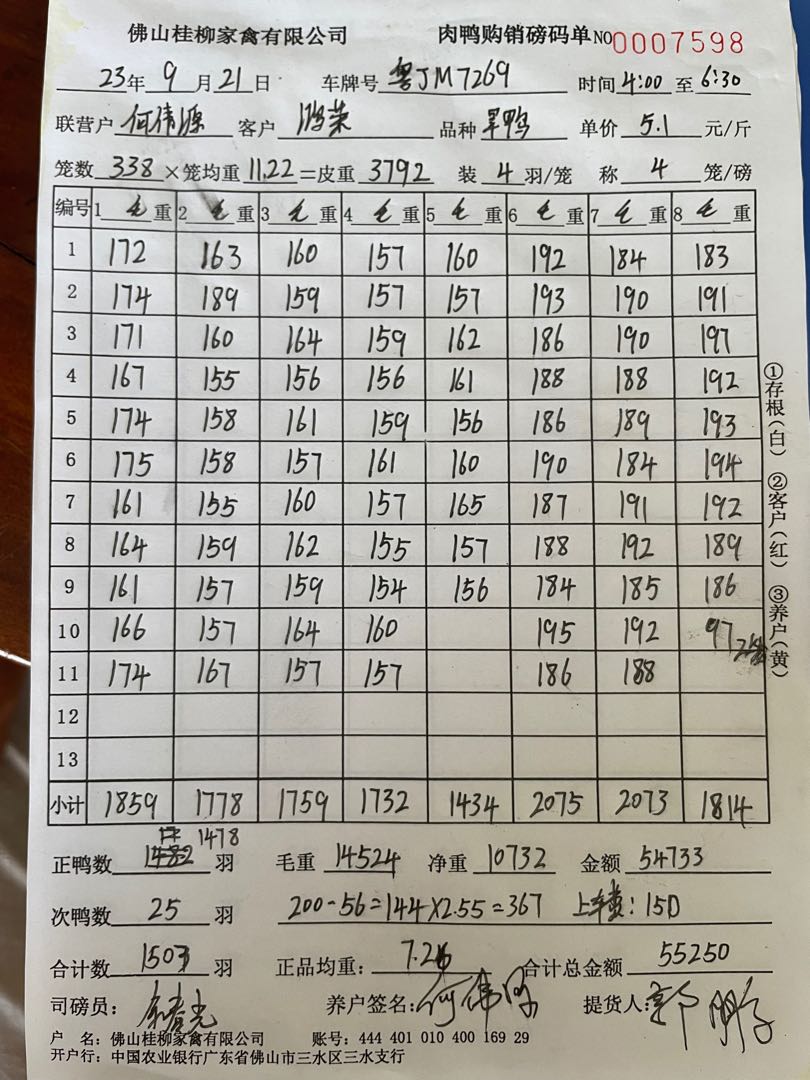 佛山桂柳家禽有限公司 肉鸭购销磅码单 NO 0007598
23年 9 月 21 日 车牌号 粤JM7269 时间 4:00 至 6:30
联营户 何伟源 客户 鸿荣 品种 单价 5.1 元/斤
笼数 338 ×笼均重 11.22 =皮重 3792 装 4 羽/笼 称 4 笼/磅
编号 1 毛 重 2 毛 重 3 毛 重 4 毛 重 5 毛 重 6 毛 重 7 毛 重 8 毛 重
1 172 163 160 157 160 192 184 183
2 174 189 159 157 157 193 190 191
3 171 160 164 159 162 186 190 197
4 167 155 156 156 161 188 188 192
5 174 158 161 159 156 186 189 193
6 175 158 157 161 160 190 184 194
7 161 155 160 157 165 187 191 192
8 164 159 162 155 157 188 192 189
9 161 157 159 154 156 184 185 186
10 166 157 164 160 195 192 97 2笼
11 174 167 157 157 186 188
12
13
小计 1859 1778 1759 1732 1434 2075 2073 1814
1478
正鸭数 1482 羽 毛重 14524 净重 10732 金额 54733
次鸭数 25 羽 200-56=144×2.55=367 上车费:150
合计数 1503 羽 正品均重: 7.26 合计总金额 55250
司磅员: 养户签名: 何伟源 提货人:
户 名: 佛山桂柳家禽有限公司 账号: 444 401 010 400 169 29
开户行: 中国农业银行广东省佛山市三水区三水支行
①存根(白) ②客户(红) ③养户(黄)